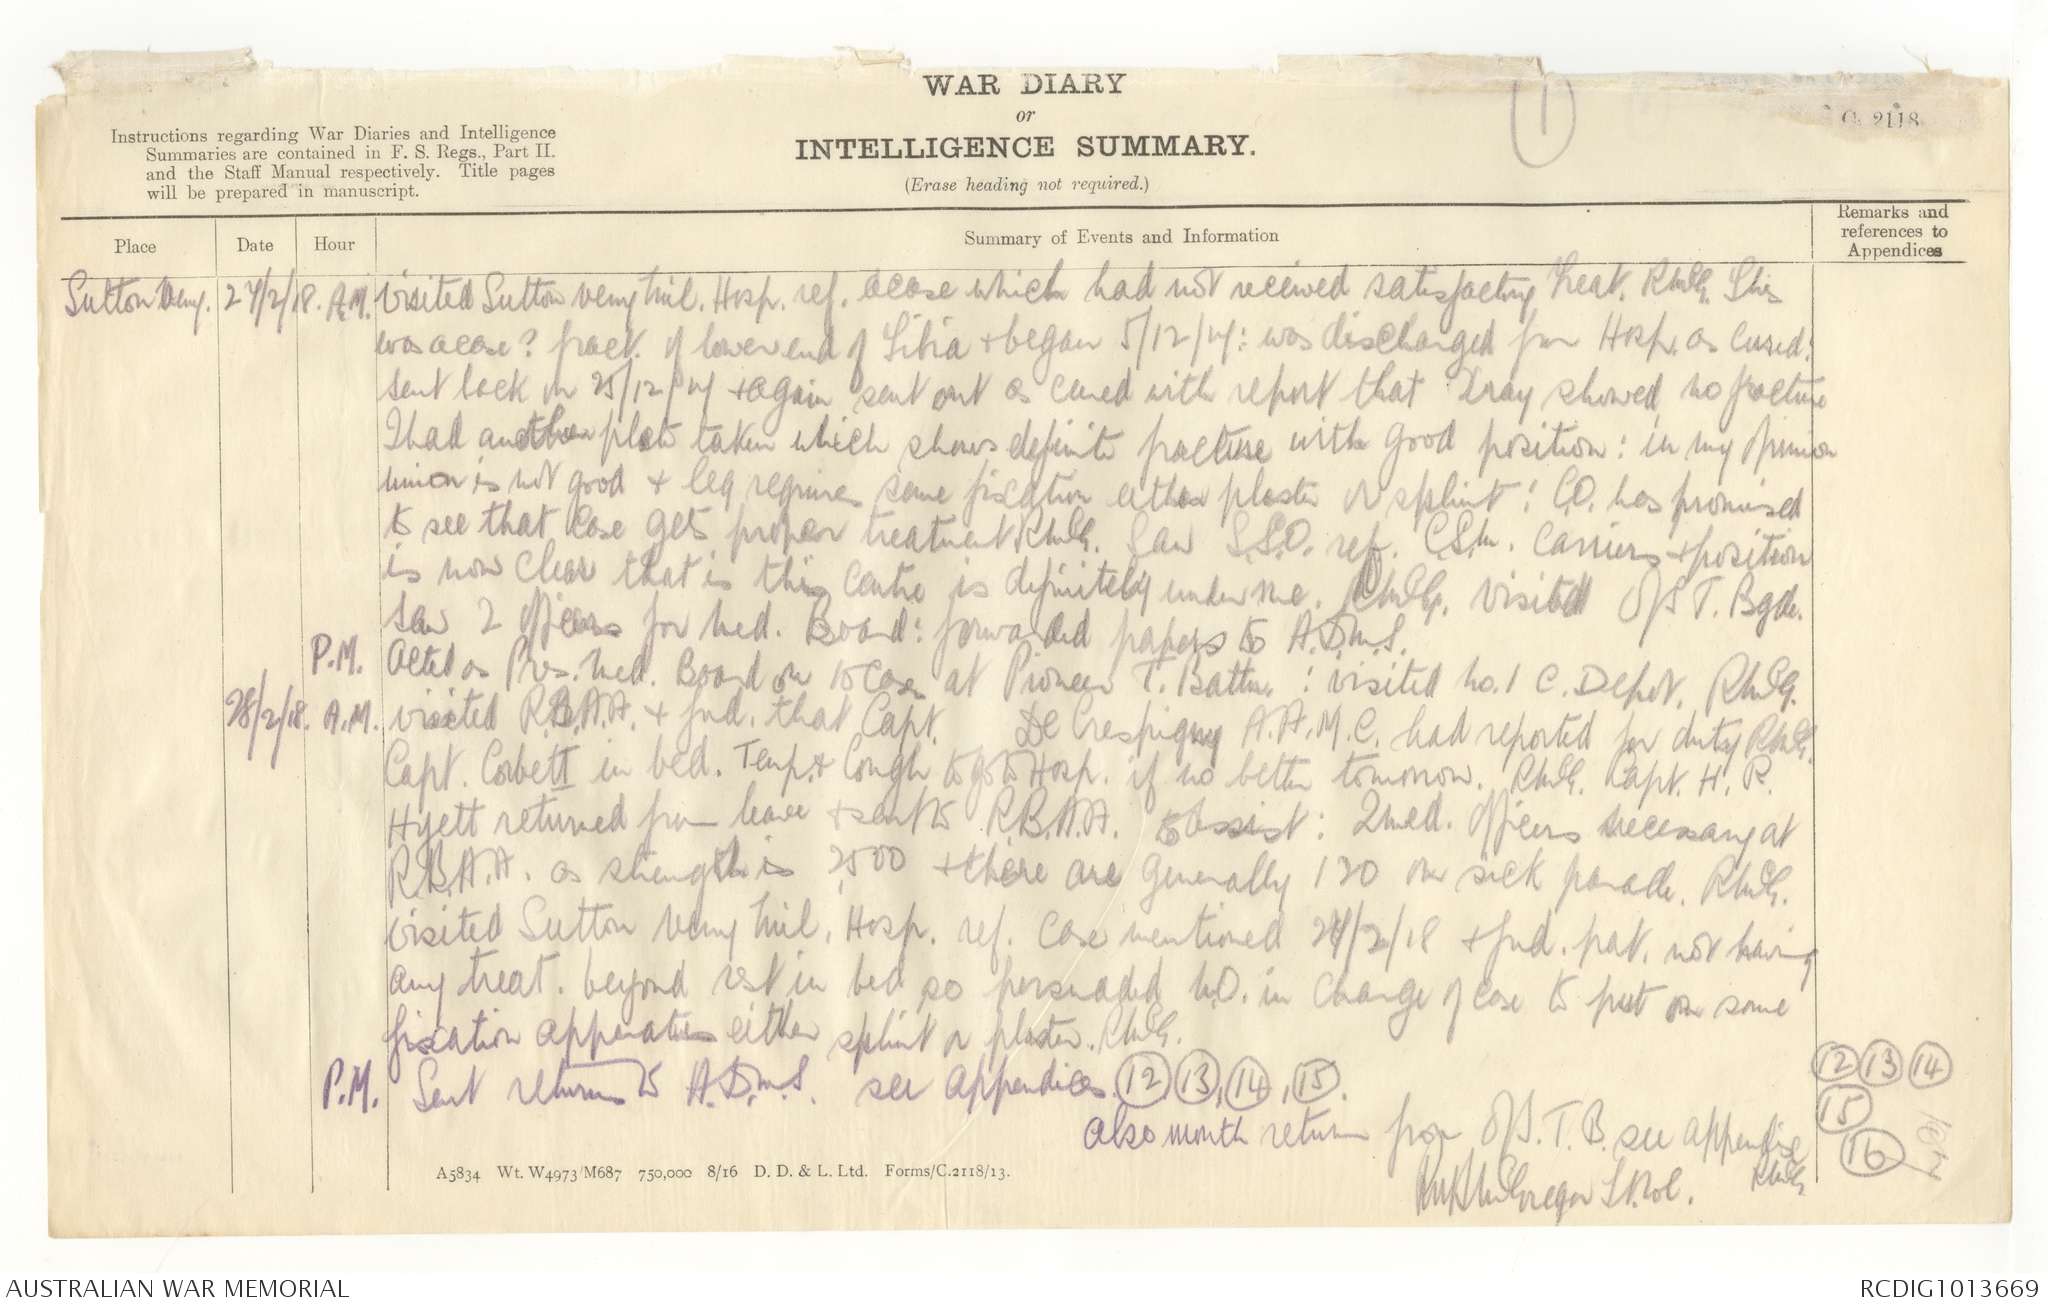 WAR DIARY
or
INTELLIGENCE SUMMARY.
(Erase heading not required.)
1
C. 2118.
Instructions regarding War Diaries and Intelligence
Summaries are contained in F. S. Regs., Part II.
and the Staff Manual respectively. Title pages
will be prepared in manuscript.
Place
Date
Hour
Summary of Events and Information
Remarks and
references to
Appendices
Sutton Veny. 27/2/18. A.M. visited Sutton Veny Mil. Hosp. ref. a case which had not received satisfactory treat. RMcG. This
was a case ? fract. of lower end of Tibia & began 5/12/17: was discharged from Hosp. as cured:
sent back on 25/12/17 & again sent out as cured with report that Xray showed no fracture
I had another plate taken which shows definite fracture with good position: in my opinion
union is not good & leg requires some fixation either plaster or splint: C.O. has promised
to see that case gets proper treatment RMcG. Saw S.S.O. ref. C.S.M. carriers & position
is now clear that is this centre is definitely under me. RMcG. visited O/S T. Bgde.
Saw 2 Officers for Med. Board: forwarded papers to A.D.M.S.
P.M. Acted as Pres. Med. Board on 10 cases at Pioneer T. Battn. : visited No. 1 C. Depot. RMcG.
28/2/18. A.M. visited R.B.A.A. & fnd. that Capt. De Crespigny A.A.M.C. had reported for duty RMcG.
Capt. Corbett in bed. Temp. & Cough to go to Hosp. if no better tomorrow. RMcG. Capt. H. R.
Hyett returned from leave & sent to R.B.A.A. to assist: 2 med. Officers necessary at
R.B.A.A. as strength is 2,500 & there are generally 120 on sick parade. RMcG.
visited Sutton Veny Mil. Hosp. ref. case mentioned 27/2/18 & fnd. pat. not having
any treat. beyond rest in bed so persuaded M.O. in charge of case to put on some
fixation apparatus either splint or plaster. RMcG.
P.M. Sent returns to A.D.M.S. see appendices (12), (13), (14), (15).
(12) (13) (14)
(15)
also month return from O/S. T. B. see appendix
(16)
RMcG
McGregor Lt. Col.
A5834 Wt. W4973/M687 750,000 8/16 D. D. & L. Ltd. Forms/C.2118/13.
AUSTRALIAN WAR MEMORIAL
RCDIG1013669